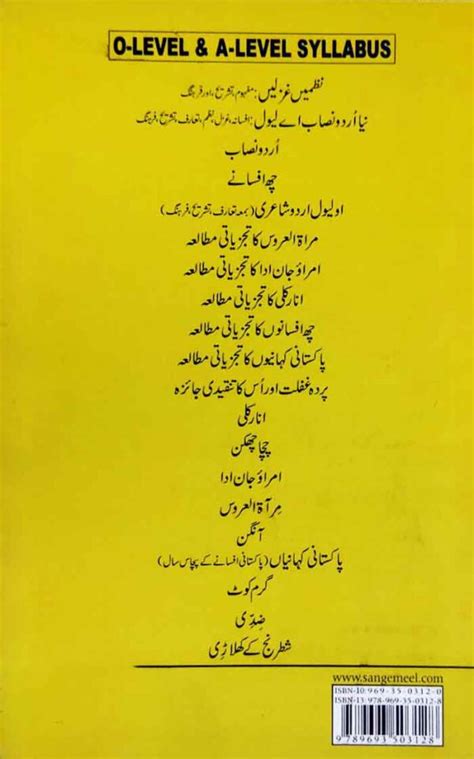 O-LEVEL & A-LEVEL SYLLABUS
نظمیں غزلیں: مفہوم، تشریح، اور فرہنگ
نیا اُردو نصاب اے لیول: افسانہ، غزل، نظم، تعارف، تشریح، فرہنگ
اُردو نصاب
چھ افسانے
او لیول اردو شاعری (بمعہ تعارف، تشریح، فرہنگ)
مراۃ العروس کا تجزیاتی مطالعہ
امراؤ جان ادا کا تجزیاتی مطالعہ
انار کلی کا تجزیاتی مطالعہ
چھ افسانوں کا تجزیاتی مطالعہ
پاکستانی کہانیوں کا تجزیاتی مطالعہ
پردہ غفلت اور اُس کا تنقیدی جائزہ
انار کلی
چچا چھکن
امراؤ جان ادا
مِرآۃ العروس
آنگن
پاکستانی کہانیاں (پاکستانی افسانے کے پچاس سال)
گرم کوٹ
ضِدّی
شطرنج کے کھلاڑی
www.sangemeel.com
ISBN-10: 969-35-0312-0
ISBN-13: 978-969-35-0312-8
9 789693 503128